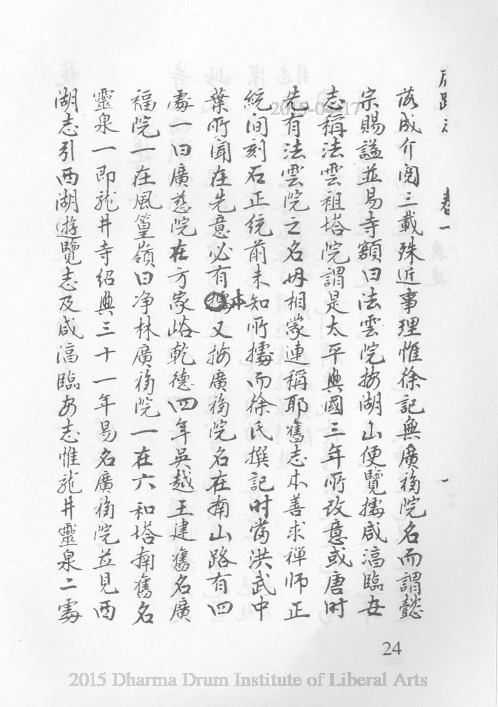 虎跑志 卷一 一
落成介閱三載殊近事理惟徐記無廣福院名而謂懿
宗賜謚並易寺額曰法雲院按湖山便覽據咸淳臨安
志稱法雲祖塔院謂是太平興國三年所改意或唐時
先有法雲院之名毋相蒙連稱耶舊志本善求禅師正
統间刻石正統前未知所據而徐氏撰记时當洪武中
葉所闻在先意必有本又按廣福院名在南山路有四
處一曰廣慈院在方家峪乾德四年吳越王建舊名廣
福院一在風篁嶺曰净林廣福院一在六和塔南舊名
靈泉一即龍井寺紹興三十一年易名廣福院並見西
湖志引西湖遊覽志及咸淳臨安志惟龍井靈泉二處
24
2015 Dharma Drum Institute of Liberal Arts